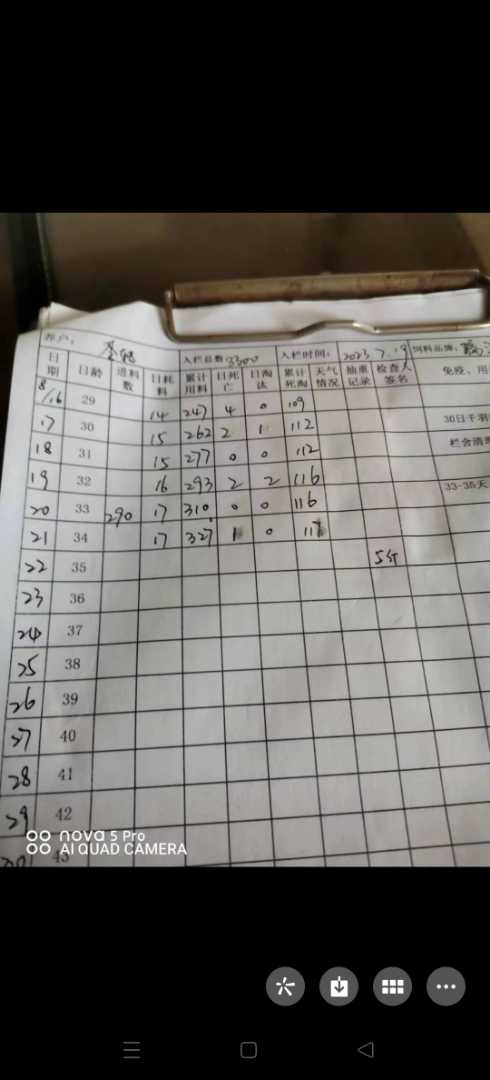 养户:
入栏总数 3300 入栏时间: 2023 7.19 饲料品牌:
日期 日龄 进料数 日耗料 累计用料 日死亡 日淘汰 累计死淘 天气情况 抽重记录 检查人签名 免疫、用
8/16 29 14 247 4 0 109
17 30 15 262 2 1 112 30日千羽
18 31 15 277 0 0 112 栏舍清
19 32 16 293 2 2 116
20 33 290 17 310 0 0 116 33-35天
21 34 17 327 1 0 117
22 35
23 36
24 37
25 38
26 39
27 40
28 41
29 42
43
nova 5 Pro
AI QUAD CAMERA